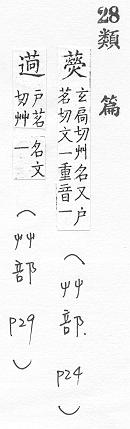 28類 篇
玄扃切艸名又户
茗切文一重音一
(艸部. P24)
戶茗名文
切艸一
(艸部 P29)